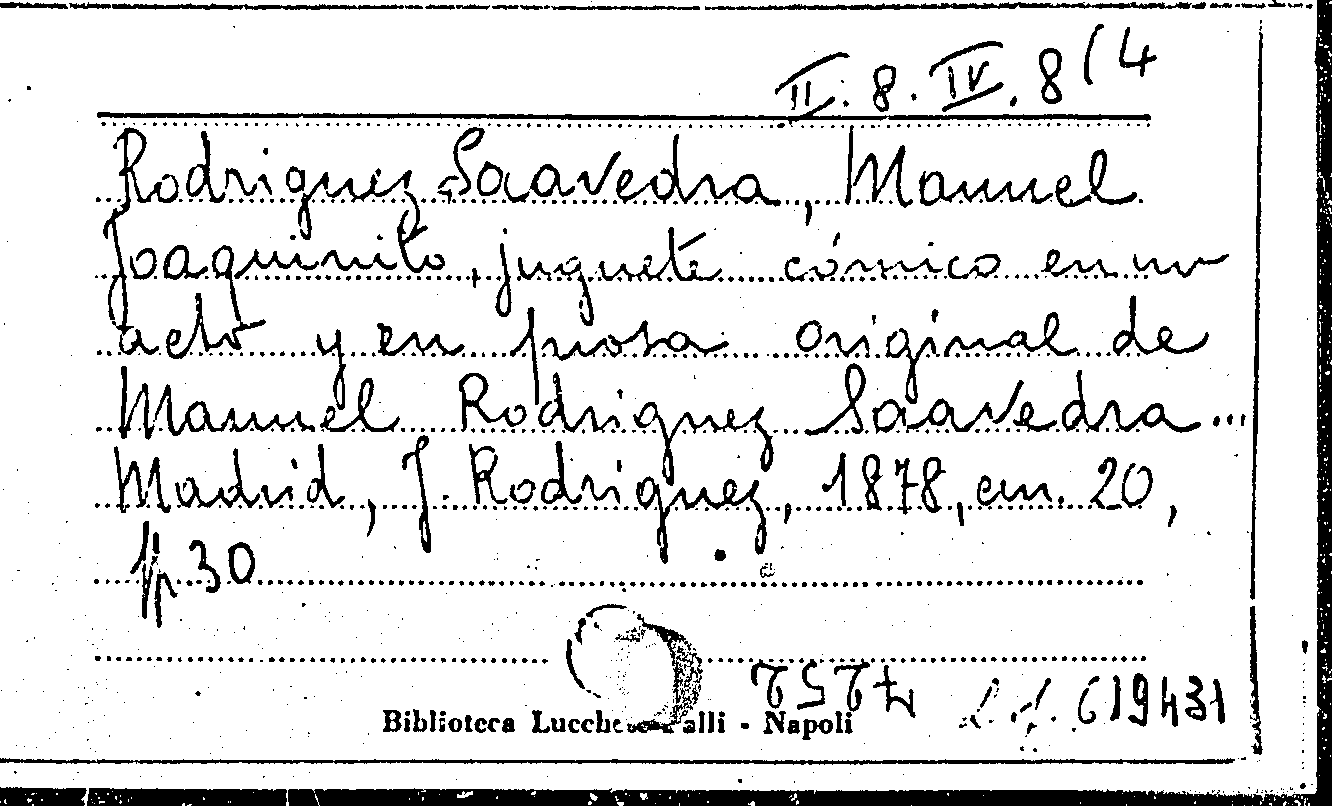 II. 8. IV. 8(4
Rodriguez Saavedra, Manuel
Joaquinito, juguete cómico en un
acto y en prosa original de
Manuel Rodriguez Saavedra...
Madrid, J. Rodriguez, 1878, cm. 20,
pp. 30
Biblioteca Lucchesi-Palli - Napoli